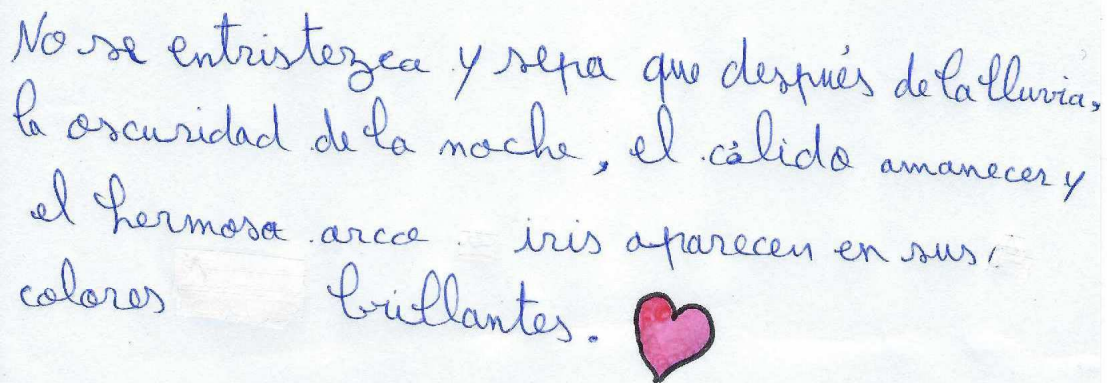 No se entristezca y sepa que después de la lluvia,
la oscuridad de la noche, el cálido amanecer y
el hermoso arco iris aparecen en sus
colores brillantes.